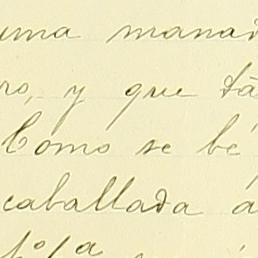 una mana
ro, y que tá
Como se bé
caballada á